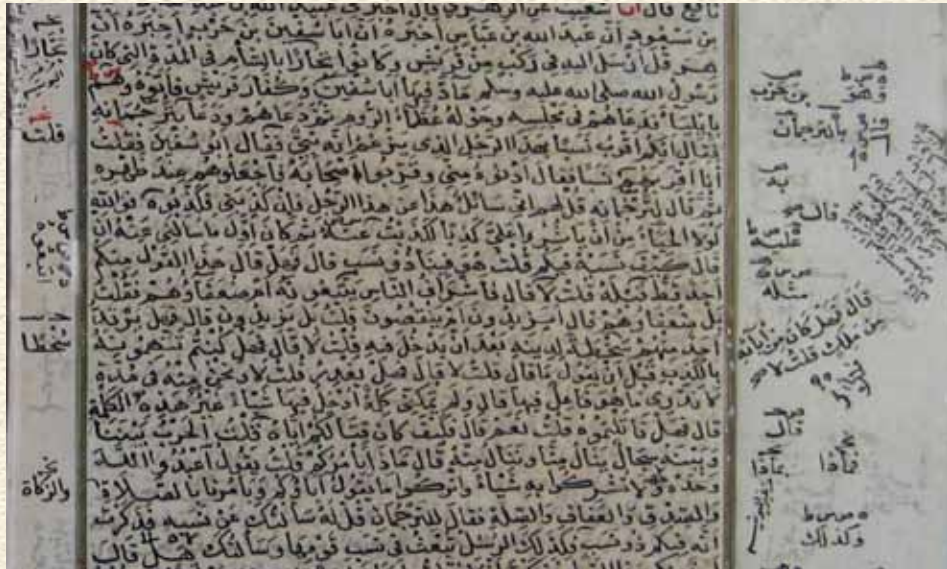 نافع قال انا شعيب عن الزهري قال اخبرني عبيد الله بن
بن مسعود ان عبد الله بن عباس اخبره ان ابا سفين بن حرب اخبره ان
هرقل ارسل اليه في ركب من قريش وكانوا تجارا بالشأم في المدة التي كان
رسول الله صلى الله عليه وسلم مادّ فيها ابا سفين وكفار قريش فاتوه وهم
بايلياء فدعاهم في مجلسه وحوله عظماء الروم ثم دعاهم ودعا بترجمانه
فقال ايكم اقرب نسبا بهذا الرجل الذي يزعم انه نبي فقال ابو سفين فقلت
انا اقربهم نسبا فقال ادنوه مني وقربوا اصحابه فاجعلوهم عند ظهره
ثم قال لترجمانه قل لهم اني سائل هذا عن هذا الرجل فان كذبني فكذبوه فوالله
لولا الحياء من ان ياثروا علي كذبا لكذبت عنه ثم كان اول ما سالني عنه ان
قال كيف نسبه فيكم قلت هو فينا ذو نسب قال فهل قال هذا القول منكم
احد قط قبله قلت لا قال فاشراف الناس يتبعونه ام ضعفاؤهم فقلت
بل ضعفاؤهم قال ايزيدون ام ينقصون قلت بل يزيدون قال فهل يرتد
احد منهم سخطة لدينه بعد ان يدخل فيه قلت لا قال فهل كنتم تتهمونه
بالكذب قبل ان يقول ما قال قلت لا قال فهل يغدر قلت لا ونحن منه في مدة
لا ندري ما هو فاعل فيها قال ولم تمكني كلمة ادخل فيها شيئا غير هذه الكلمة
قال فهل قاتلتموه قلت نعم قال فكيف كان قتالكم اياه قلت الحرب بيننا
وبينه سجال ينال منا وننال منه قال ماذا يامركم قلت يقول اعبدوا الله
وحده ولا تشركوا به شيئا واتركوا ما يقول اباؤكم ويامرنا بالصلاة
والصدق والعفاف والصلة فقال للترجمان قل له سالتك عن نسبه فذكرت
انه فيكم ذو نسب فكذلك الرسل تبعث في نسب قومها وسالتك هل قال
وهو
بن حرب
قال
بالترجمان
قال
عليه
مثله
قال فهل كان من آبائه
من ملك قلت لا
قال
بماذا
فماذا
وكذلك
قلت
اتبعوه
سخطا
والزكاة